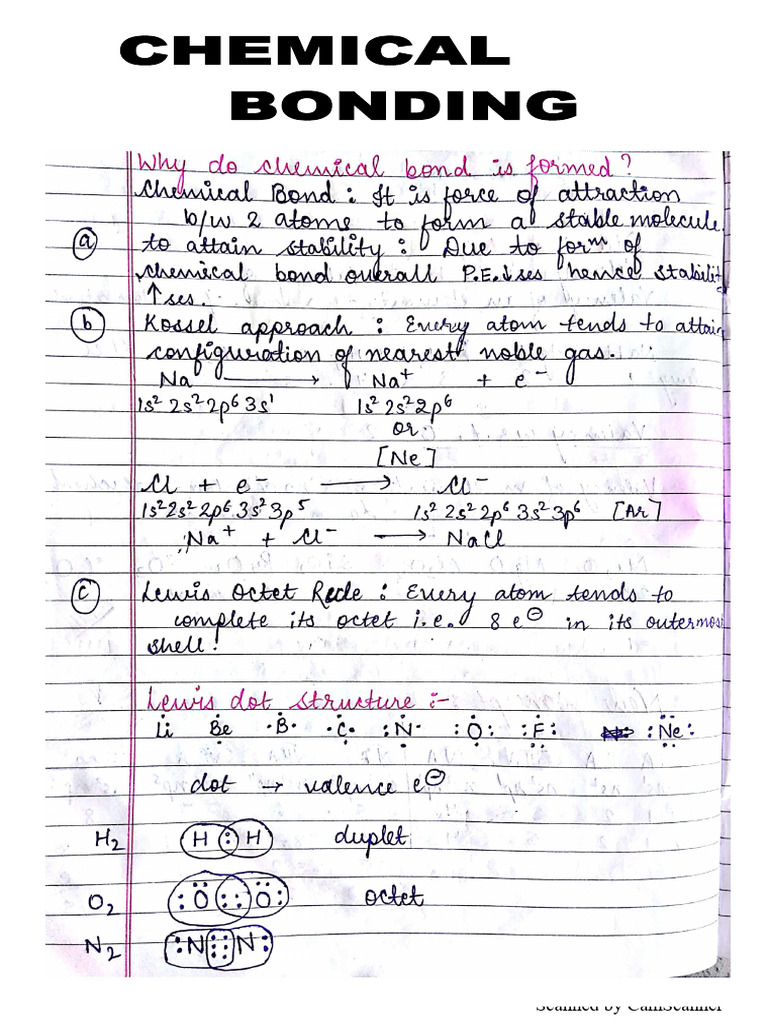 CHEMICAL
BONDING
Why do chemical bond is formed?
Chemical Bond : It is force of attraction
b/w 2 atoms to form a stable molecule.
(a) to attain stability : Due to formⁿ of
chemical bond overall P.E.↓ses hence stabilit
↑ses.
(b) Kossel approach : Every atom tends to attain
configuration of nearest noble gas.
Na ⟶ Na⁺ + e⁻
1s² 2s² 2p⁶ 3s¹ 1s² 2s² 2p⁶
or
[Ne]
Cl + e⁻ ⟶ Cl⁻
1s² 2s² 2p⁶ 3s² 3p⁵ 1s² 2s² 2p⁶ 3s² 3p⁶ [Ar]
Na⁺ + Cl⁻ ⟶ NaCl
(c) Lewis Octet Rule : Every atom tends to
complete its octet i.e. 8 e⊖ in its outermos
shell!
Lewis dot structure :-
Li Be B C N O F Ne
dot → valence e⊖
H₂ H : H duplet
O₂ :O::O: octet
N₂ :N:::N:
Scanned by CamScanner